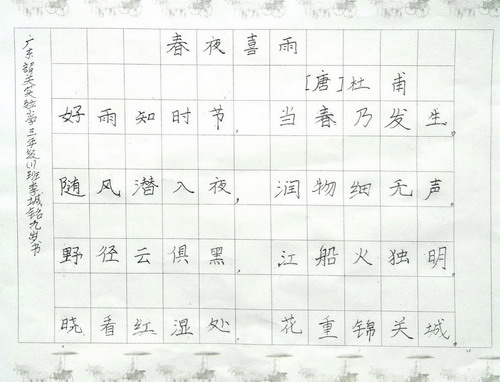 春夜喜雨
[唐]杜甫
好雨知时节，当春乃发生。
随风潜入夜，润物细无声。
野径云俱黑，江船火独明。
晓看红湿处，花重锦关城。
广东韶关实验小学三年级(1)班李城铭九岁书